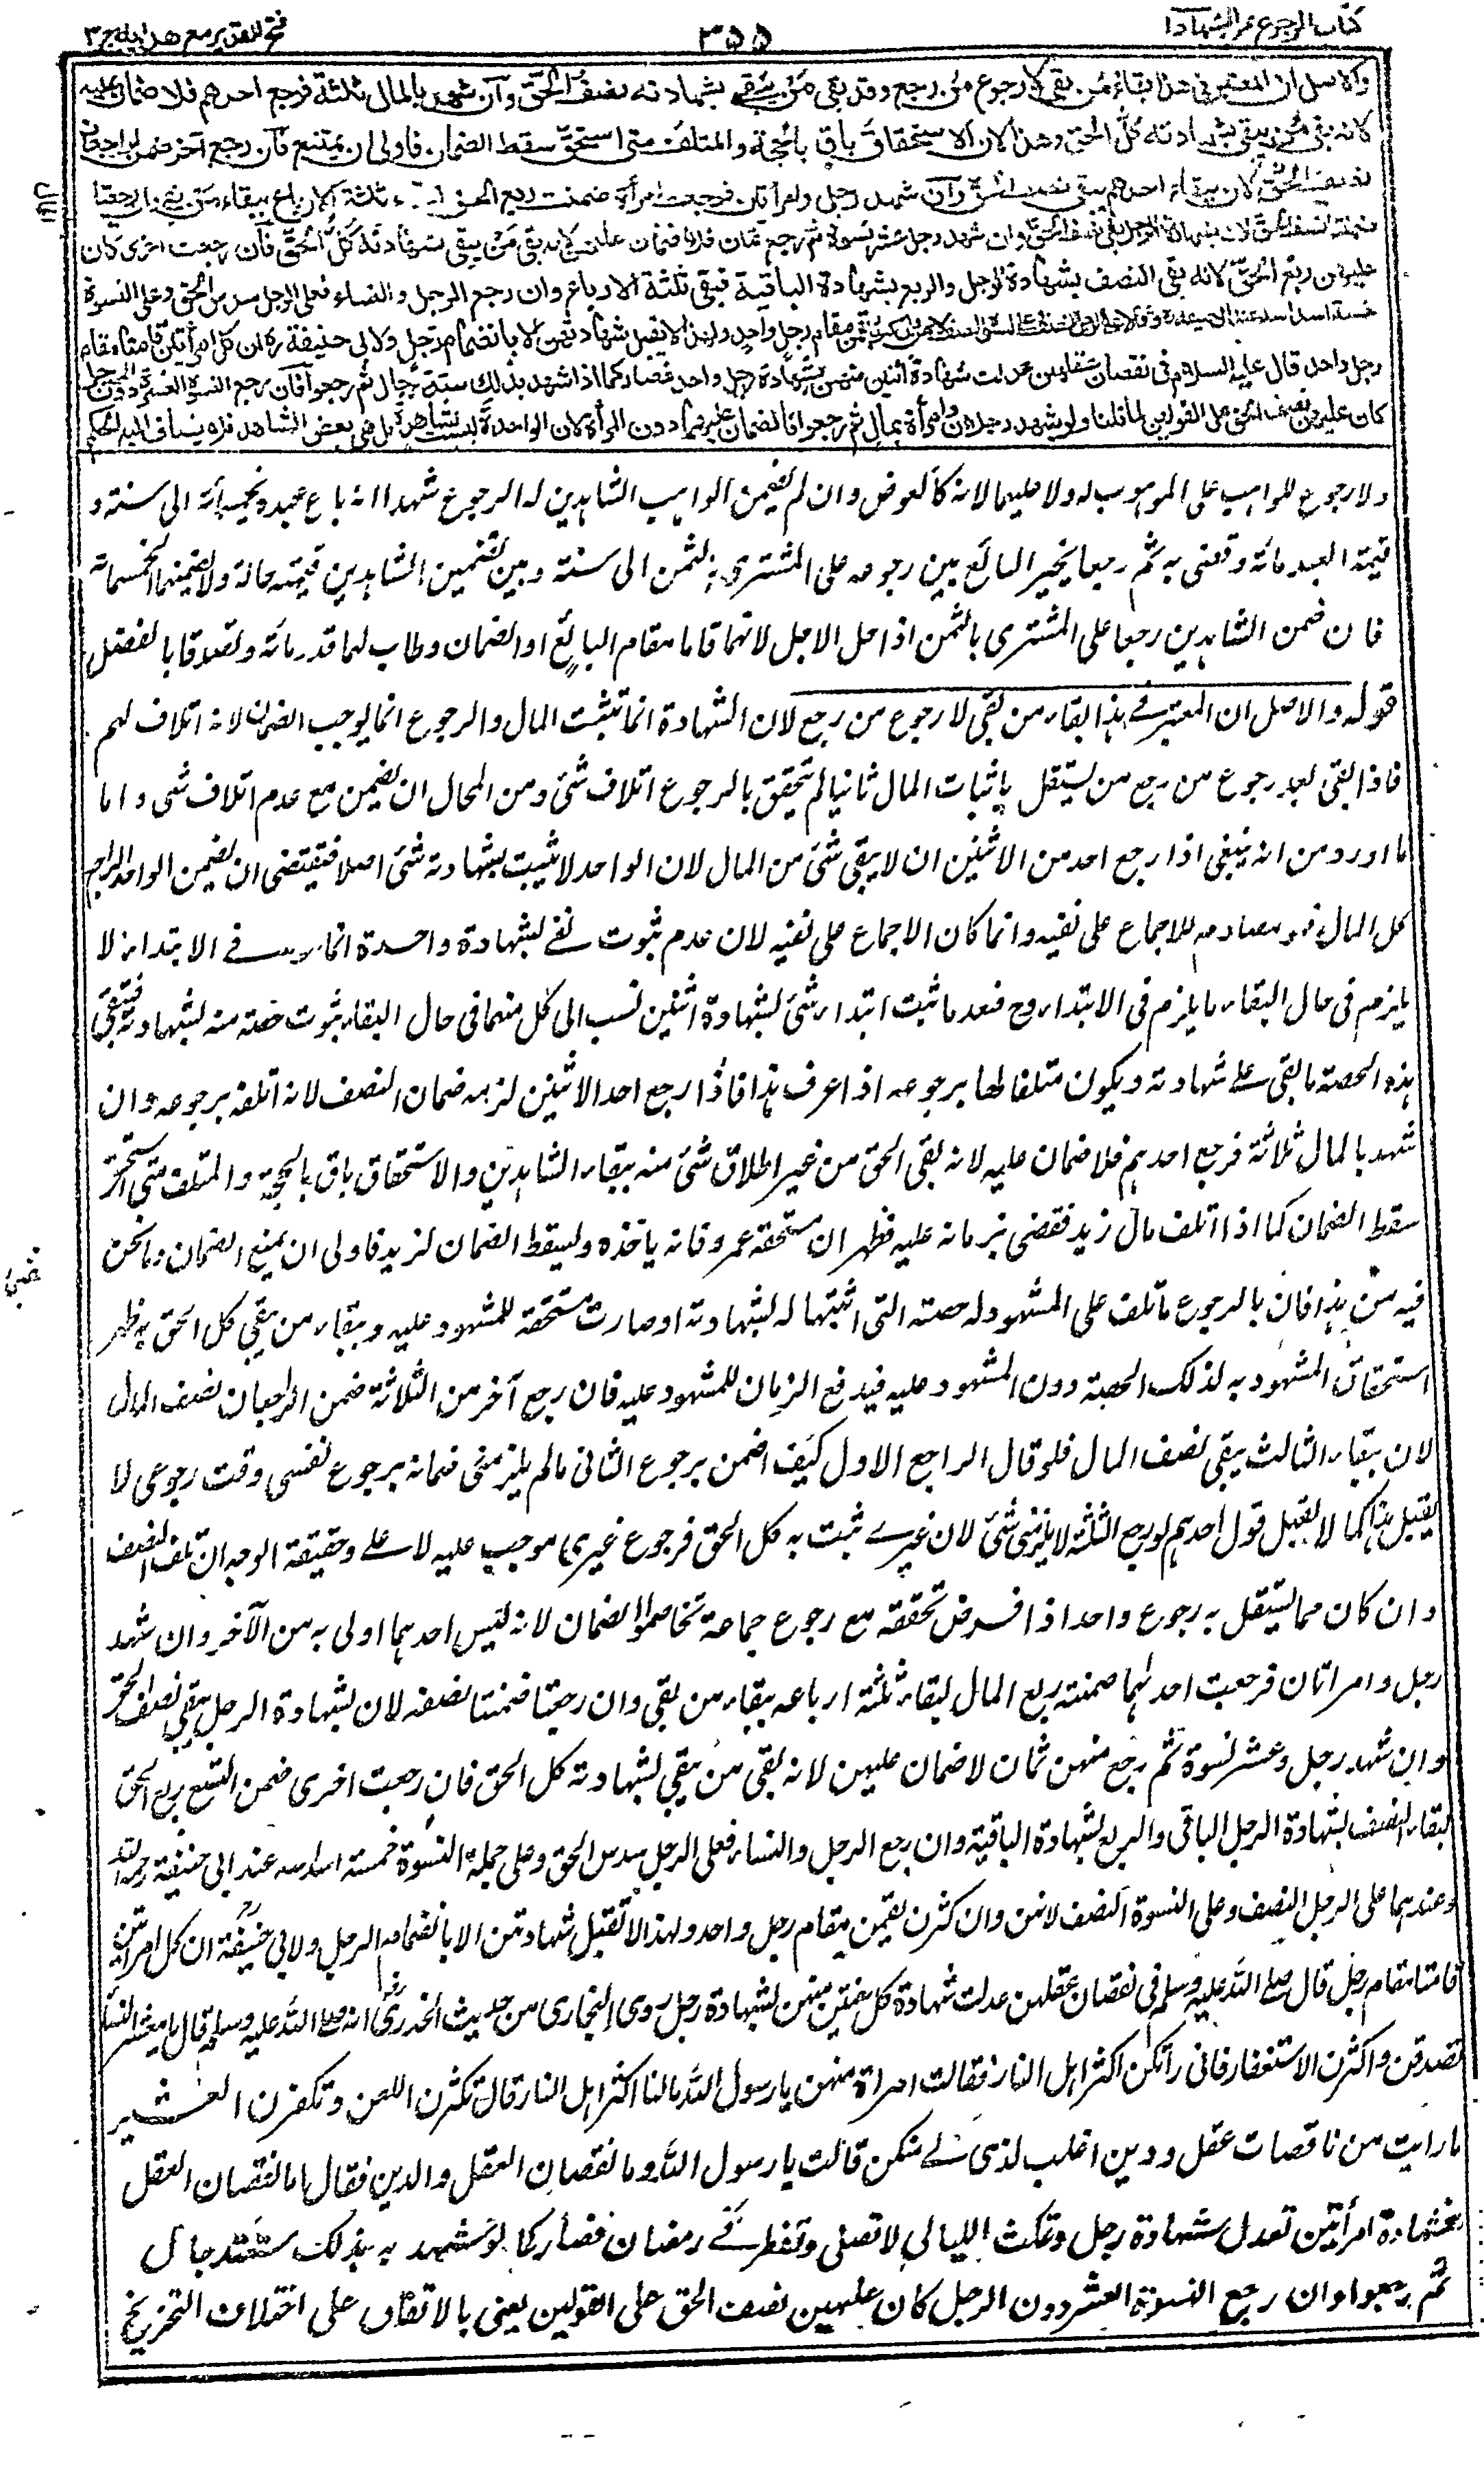 كتاب الرجوع عن الشهادات
٣٥٥
فتح القدير مع هدايه ج ٣
والاصل ان المعتبر فى هذا بقاء من بقى لا رجوع من رجع وقد بقى من يبقى بشهادته نصف الحق وان شهد بالمال ثلثة فرجع احدهم فلا ضمان عليه
لانه بقى من يبقى بشهادته كل الحق وهذا لان الاستحقاق باق بالحجة والمتلف متى استحق سقط الضمان فاولى ان يمتنع فان رجع آخر ضمن الراجعان
المال
نصف الحق لان ببقاء احدهم يبقى نصف الحق وان شهد رجل وامرأتان فرجعت امرأة ضمنت ربع الحق ثلثة الارباع ببقاء من بقى وان رجعتا
ضمنتا نصف الحق لان بشهادة الرجل بقى نصف الحق وان شهد رجل وعشرة نسوة ثم رجع ثمان فلا ضمان عليهن لانه بقى من يبقى بشهادته كل الحق فان رجعت اخرى كان
عليهن ربع الحق لانه بقى النصف بشهادة الرجل والربع بشهادة الباقية فبقى ثلثة الارباع وان رجع الرجل والنساء فعلى الرجل سدس الحق وعلى النسوة
خمسة اسداسه عند ابى حنيفة مقام رجل واحد ولهذا لا تقبل شهادتهن الا بانضمام رجل ولابى حنيفة ره ان كل امرأتين قامتا مقام
رجل واحد قال عليه السلام فى نقصان عقلهن عدلت شهادة اثنين منهن بشهادة رجل واحد فصار كما اذا شهد بذلك ستة رجال ثم رجعوا فان رجع النسوة العشرة دون الرجل
كان عليهن نصف الحق على القولين لما قلنا ولو شهد رجلان وامرأة بمال ثم رجعوا فالضمان عليهما دون المرأة لان الواحدة ليست بشاهدة بل هى بعض الشاهد فلا يضاف اليه الحكم
ولا رجوع للواهب على الموهوب له ولا عليهما لانه كالعوض وان لم يضمن الواهب الشاهدين له الرجوع شهدا انه باع عبده بخمسمائة الى سنة و
قيمة العبد مائة وقضى به ثم رجعا يخير البائع بين رجوعه على المشترى بالثمن الى سنة وبين تضمين الشاهدين قيمته حالة ولا يضمنهما الخمسمائة
فان ضمن الشاهدين رجعا على المشترى بالثمن اذا حل الاجل لانهما قاما مقام البائع اوالضمان وطاب لهما قدر مائة وتصدقا بالفضل
قوله والاصل ان المعتبر فى هذا بقاء من بقى لا رجوع من رجع لان الشهادة انما تثبت المال والرجوع انما يوجب الضمان لانه اتلاف لهم
فاذا بقى بعد رجوع من رجع من يستقل باثبات المال ثانيا لم يتحقق بالرجوع اتلاف شئ ومن المحال ان يضمن مع عدم اتلاف شئ واما
ما اورد من انه ينبغى اذا رجع احد من الاثنين ان لا يبقى شئ من المال لان الواحد لا يثبت بشهادته شئ اصلا فيقتضى ان يضمن الواحد الراجع
كل المال فهو مصادمه للاجماع على نفيه وانما كان الاجماع على نفيه لان عدم ثبوت شئ بشهادة واحدة انما فى الابتداء ولا
يلزم فى حال البقاء ما يلزم فى الابتداء وح فبعد ما ثبت ابتداء شئ بشهادة اثنين نسب الى كل منهما فى حال البقاء ثبوت حصته منه بشهادته فتبقى
هذه الحصة ما بقى على شهادته ويكون متلفا لها برجوعه اذا عرف هذا فاذا رجع احد الاثنين لزمه ضمان النصف لانه اتلفه برجوعه وان
شهد بالمال ثلاثة فرجع احدهم فلا ضمان عليه لانه بقى الحق من غير اطلاق شئ منه ببقاء الشاهدين والاستحقاق باق بالحجة والمتلف متى استحق
سقط الضمان كما اذا اتلف مال زيد فقضى بزمانه عليه فظهر ان مستحقه عمرو فانه ياخذه ويسقط الضمان لزيد فاولى ان يمنع الضمان وما نحن
فيه من هذا فان بالرجوع ما تلف على المشهود له حصته التى اثبتها له بشهادته او صارت مستحقة للمشهود عليه وبقاء من بقى كل الحق به ظهر
استحقاق المشهود به لذلك الحصة دون المشهود عليه فيدفع الزمان للمشهود عليه فان رجع آخر من الثلاثة ضمن الراجعان نصف المال
لان ببقاء الثالث يبقى نصف المال فلو قال الراجع الاول كيف اضمن برجوع الثانى ما لم يلزمنى ضمانه برجوع نفسى وقت رجوعى لا
يقبل هذا كما لا يقبل قول احدهم لو رجع الثلثة لا يلزمنى شئ لان غيرى ثبت به كل الحق فرجوع غيرى موجب عليه لا على وحقيقة الوجه ان تلف النصف
وان كان مما يستقل به رجوع واحد اذا فرض تحققه مع رجوع جماعة تخاصموا الضمان لانه ليس احدهما اولى به من الآخر وان شهد
رجل وامراتان فرجعت احدهما ضمنت ربع المال لبقاء ثلثة ارباعه ببقاء من بقى وان رجعتا ضمنتا نصفه لان بشهادة الرجل يبقى نصف الحق
وان شهد رجل وعشر نسوة ثم رجع منهن ثمان لا ضمان عليهن لانه بقى من يبقى بشهادته كل الحق فان رجعت اخرى ضمن التسع ربع الحق
لبقاء النصف بشهادة الرجل الباقى والربع بشهادة الباقية وان رجع الرجل والنساء فعلى الرجل سدس الحق وعلى جملة النسوة خمسة اسداسه عند ابى حنيفة رحمه الله
وعندهما على الرجل النصف وعلى النسوة النصف لانهن وان كثرن يقمن مقام رجل واحد ولهذا لا تقبل شهادتهن الا بانضمامه الرجل ولابى حنيفة ان كل امراتين
قامتا مقام رجل قال صلى الله عليه وسلم فى نقصان عقلهن عدلت شهادة كل ثنتين منهن بشهادة رجل روى البخارى من حديث الخدرى انه صلى الله عليه وسلم قال يا معشر النساء
تصدقن واكثرن الاستغفار فانى رأتكن اكثر اهل النار فقالت امراة منهن يا رسول الله مالنا اكثر اهل النار قال تكثرن اللعن وتكفرن العشير
ما رايت من ناقصات عقل ودين اغلب لذى لب منكن قالت يا رسول الله وما نقصان العقل والدين فقال اما نقصان العقل
فشهادة امرأتين تعدل شهادة رجل وتمكث الليالى لا تصلى وتفطر فى رمضان فصار كما لو شهد به بذلك ستة رجال
ثم رجعوا وان رجع النسوة العشر دون الرجل كان عليهن نصف الحق على القولين يعنى بالاتفاق على اختلاف التخريج